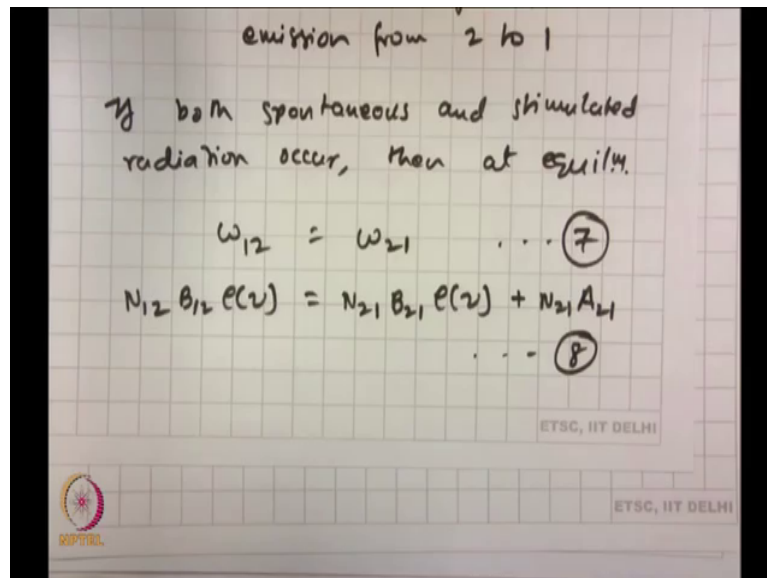 emission from 2 to 1
If both spontaneous and stimulated
radiation occur, then at equilm.
ω12 = ω21 ... 7
N12 B12 ρ(ν) = N21 B21 ρ(ν) + N21 A21
... 8
ETSC, IIT DELHI
ETSC, IIT DELHI
NPTEL